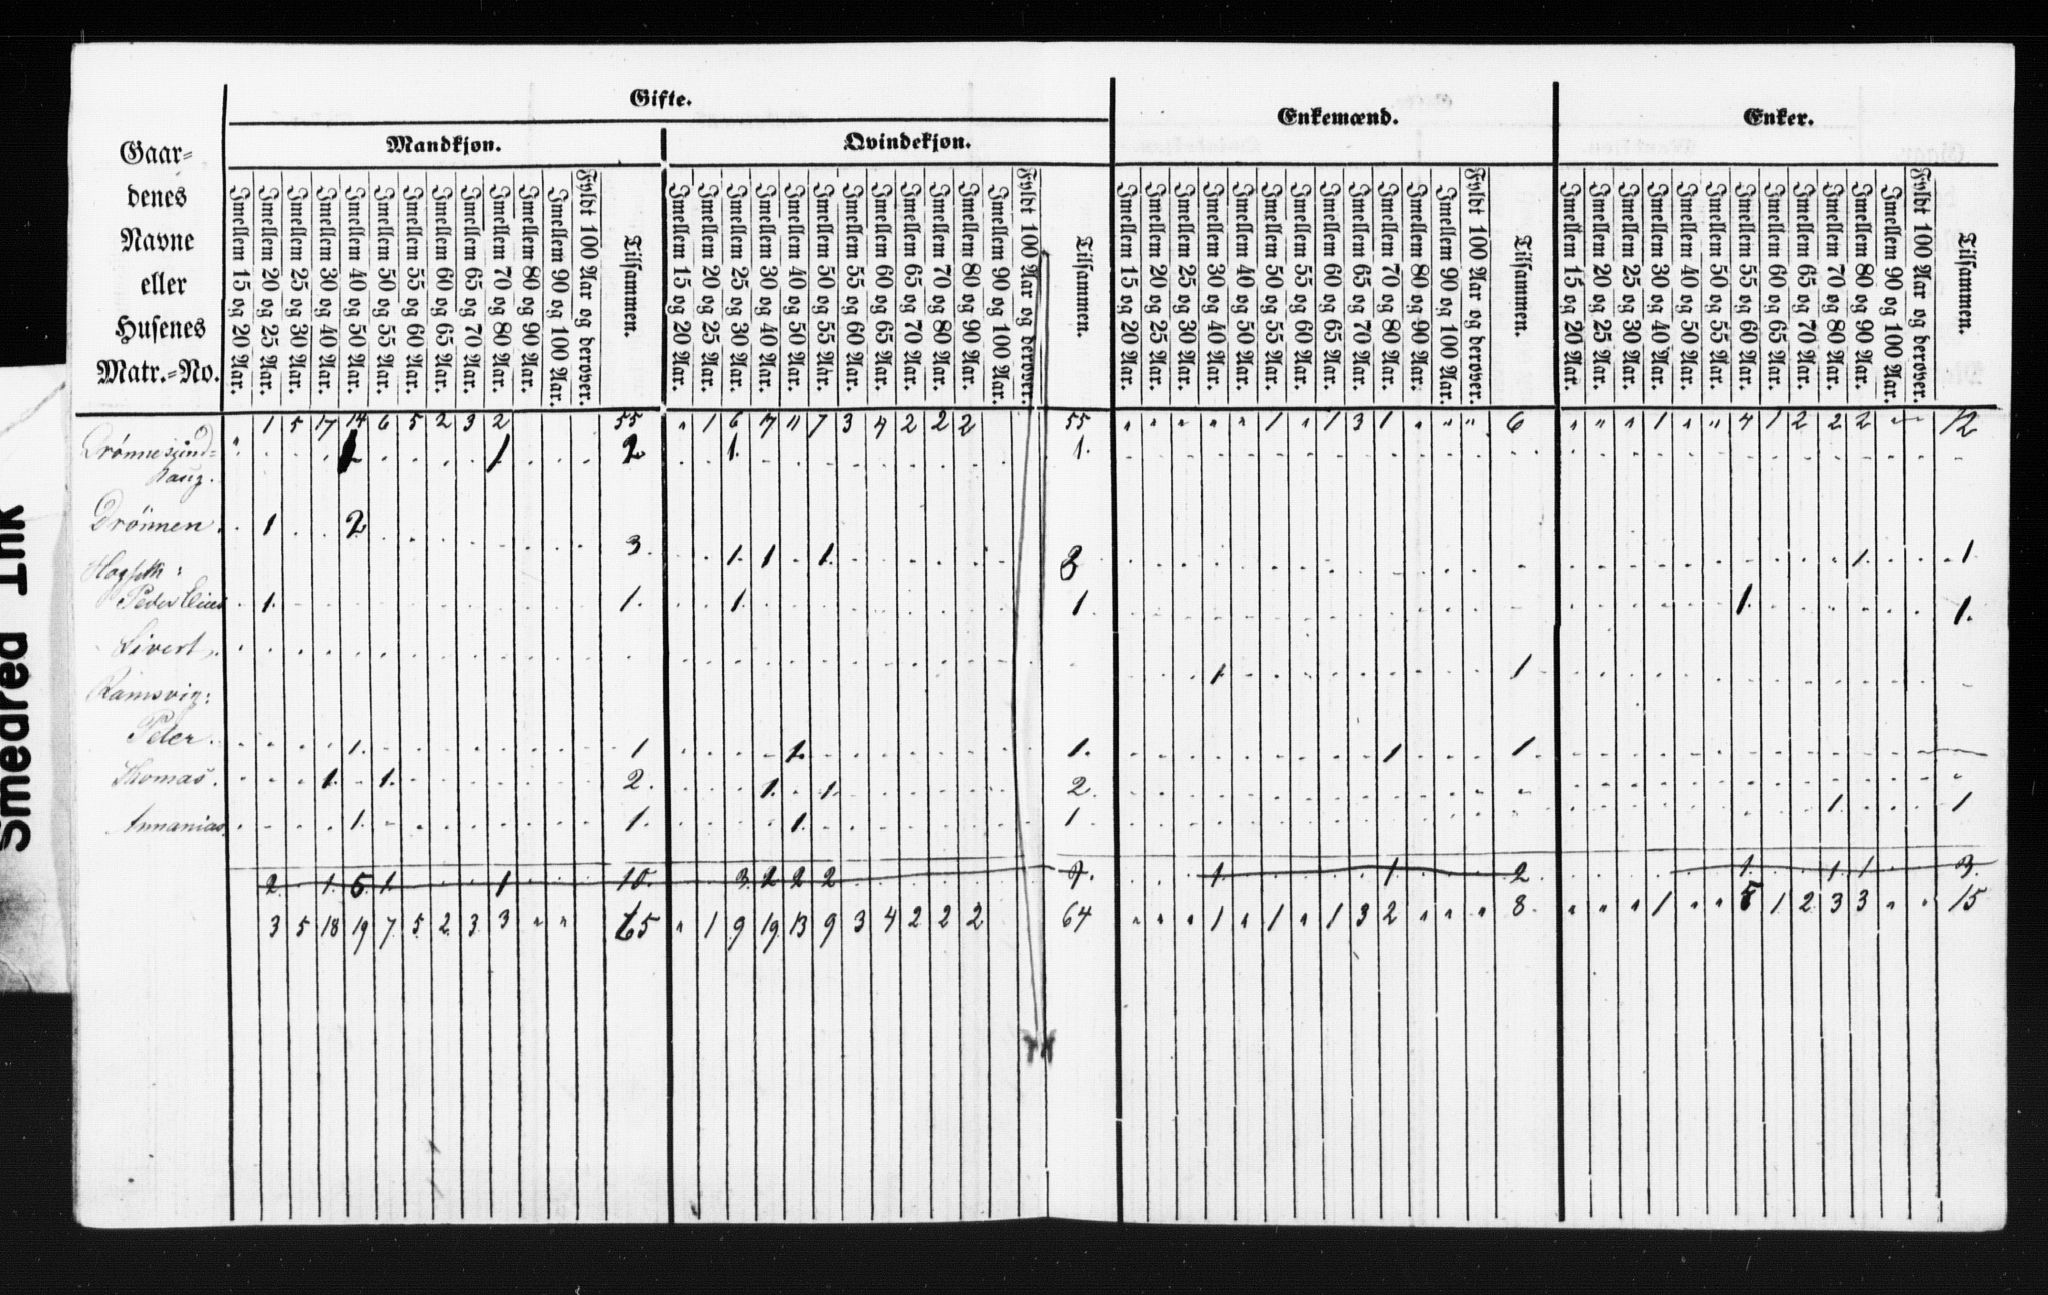 Gifte.
Enkemænd.
Enker.
Mandkjøn.
Qvindekjøn.
Gaar=
denes
Navne
eller
Husenes
Matr.=No.
Imellem 15 og 20 Aar.
Imellem 20 og 25 Aar.
Imellem 25 og 30 Aar.
Imellem 30 og 40 Aar.
Imellem 40 og 50 Aar.
Imellem 50 og 55 Aar.
Imellem 55 og 60 Aar.
Imellem 60 og 65 Aar.
Imellem 65 og 70 Aar.
Imellem 70 og 80 Aar.
Imellem 80 og 90 Aar.
Imellem 90 og 100 Aar.
Fyldt 100 Aar og derover.
Tilsammen.
Imellem 15 og 20 Aar.
Imellem 20 og 25 Aar.
Imellem 25 og 30 Aar.
Imellem 30 og 40 Aar.
Imellem 40 og 50 Aar.
Imellem 50 og 55 Aar.
Imellem 55 og 60 Aar.
Imellem 60 og 65 Aar.
Imellem 65 og 70 Aar.
Imellem 70 og 80 Aar.
Imellem 80 og 90 Aar.
Imellem 90 og 100 Aar.
Fyldt 100 Aar og derover.
Tilsammen.
Imellem 15 og 20 Aar.
Imellem 20 og 25 Aar.
Imellem 25 og 30 Aar.
Imellem 30 og 40 Aar.
Imellem 40 og 50 Aar.
Imellem 50 og 55 Aar.
Imellem 55 og 60 Aar.
Imellem 60 og 65 Aar.
Imellem 65 og 70 Aar.
Imellem 70 og 80 Aar.
Imellem 80 og 90 Aar.
Imellem 90 og 100 Aar.
Fyldt 100 Aar og derover.
Tilsammen.
Imellem 15 og 20 Aar.
Imellem 20 og 25 Aar.
Imellem 25 og 30 Aar.
Imellem 30 og 40 Aar.
Imellem 40 og 50 Aar.
Imellem 50 og 55 Aar.
Imellem 55 og 60 Aar.
Imellem 60 og 65 Aar.
Imellem 65 og 70 Aar.
Imellem 70 og 80 Aar.
Imellem 80 og 90 Aar.
Imellem 90 og 100 Aar.
Fyldt 100 Aar og derover.
Tilsammen.
" 1 5 17 14 6 5 2 3 2 55 " 1 6 17 " 7 3 4 2 2 2 55 " " " " " 1 " 1 3 1 " " " 6 " " " 1 " " 4 1 2 2 2 " 12
2 1 2 1 1.
haug.
Drönnen. 1 2 3 1 1 1 3 1 1
1 1. 1 1 1 1.
Sivert. 1 1
Ramsvig:
Peter. 1 1 1 1. 1 1
Thomas. 1 1 2. 1 1 2. 1 1
Annanias 1 1. 1 1
2 1 5 1 1 10. 3 2 2 2 1 1 2 1 1 1 3.
3 5 18 19 7 5 2 3 3 " " 65 " 1 9 19 13 9 3 4 2 2 2 64 " " " 1 " 1 " 1 3 2 " " " 8 " " " 1 " " 5 1 2 3 3 " " 15
Smedred Ink